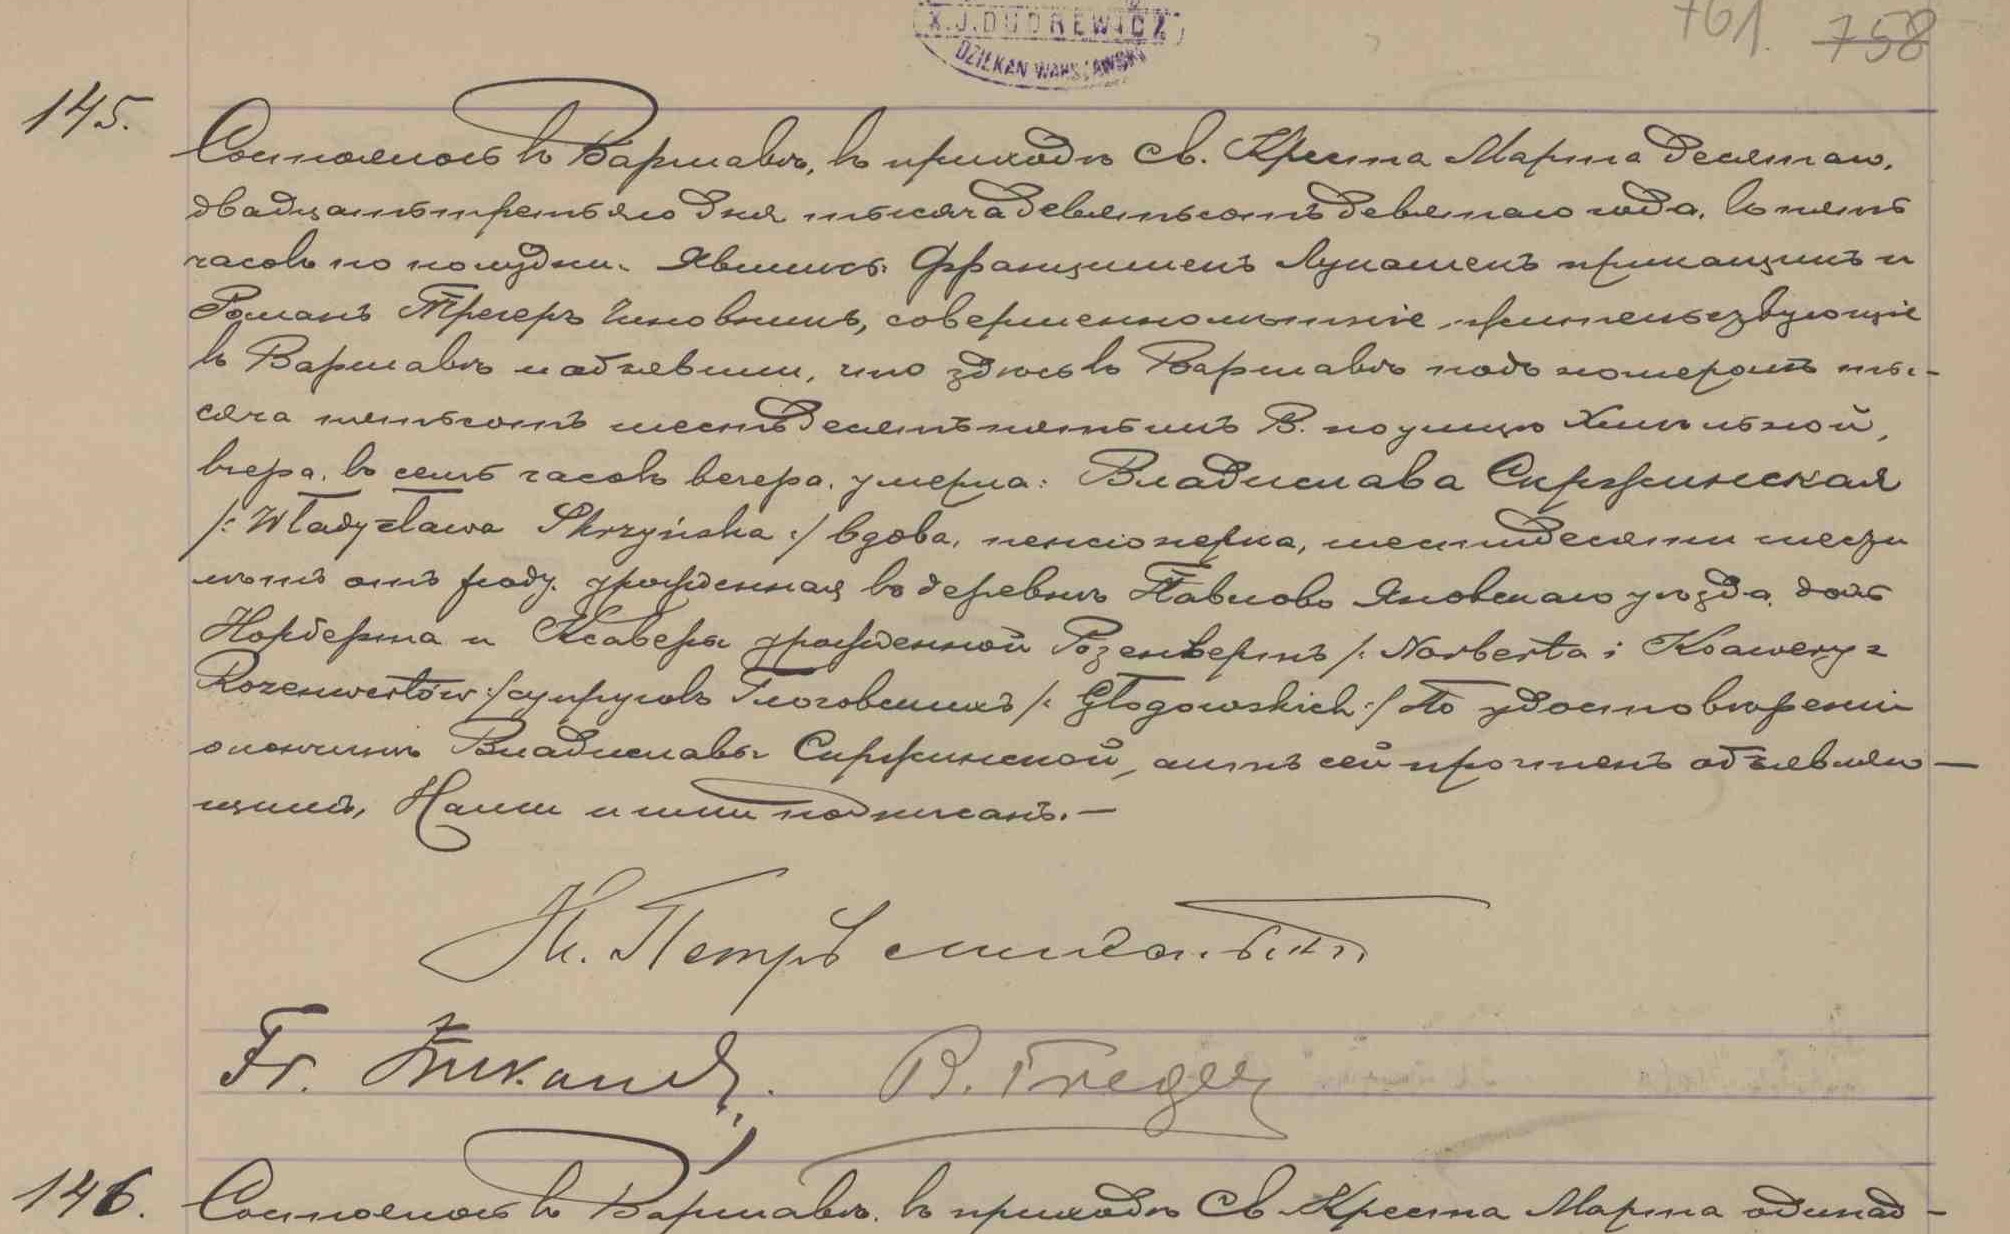 X. J. DUDREWICZ
DZIEKAN WARSZAWSKI
761. 758
145.
Состоялось въ Варшавѣ, въ приходѣ Св. Креста Марта десятаго,
двадцать третьяго дня тысяча девятьсотъ девятаго года, въ пять
часовъ по полудни. Явились: Францишекъ Лукашекъ прикащикъ и
Романъ Трегеръ чиновникъ, совершеннолѣтніе, жительствующіе
въ Варшавѣ и объявили, что здѣсь въ Варшавѣ подъ номеромъ ты-
сяча пятьсотъ шестьдесятъ пятымъ В. по улицѣ Хмѣльной,
вчера, въ семь часовъ вечера, умерла: Владислава Скржинская
/: Władysława Skrzyńska :/ вдова, пенсіонерка, шестидесяти
лѣтъ отъ роду, урожденная въ деревнѣ Павлово Яновскаго уѣзда, дочь
Норберта и Ксаверы урожденной Розенвертъ /: Norberta i Ksawery z
Rozenwertów :/ супруговъ Глоговскихъ /: Głogowskich :/ По удостовѣреніи
о кончинѣ Владиславы Скржинской, актъ сей прочтенъ объявляю-
щимъ, Нами и ими подписанъ. —
Кс. Петръ
Fr. R. Treger
146.
Состоялось въ Варшавѣ, въ приходѣ Св. Креста Марта одинад-